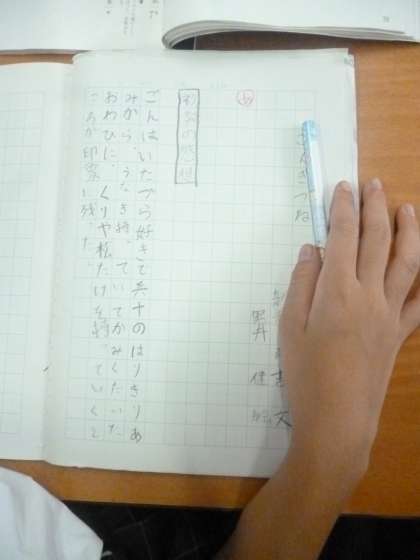 ごんぎつね
吉 文
黒井 健 絵
初発の感想
ごんは、いたづら好きで兵十のはりきりあ
みから、うなぎ持っていてかみくだいた
おわびに、くりや松たけを持っていくと
ころが印象に残った。